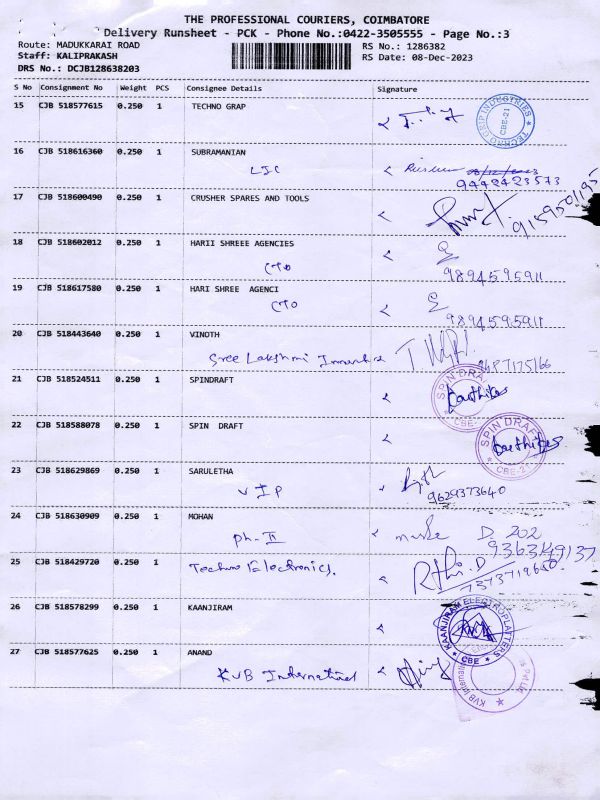 THE PROFESSIONAL COURIERS, COIMBATORE
Delivery Runsheet - PCK - Phone No.:0422-3505555 - Page No.:3
Route: MADUKKARAI ROAD RS No.: 1286382
Staff: KALIPRAKASH RS Date: 08-Dec-2023
DRS No.: DCJB128638203
S No Consignment No Weight PCS Consignee Details Signature
15 CJB 518577615 0.250 1 TECHNO GRAP
TECHNO GRIP INDUSTRIES CBE-21
16 CJB 518616360 0.250 1 SUBRAMANIAN
LIC 08/12/2023
9442423573
17 CJB 518600490 0.250 1 CRUSHER SPARES AND TOOLS
9159501195
18 CJB 518602012 0.250 1 HARII SHREEE AGENCIES
CTO 9894595911
19 CJB 518617580 0.250 1 HARI SHREE AGENCI
CTO 9894595911
20 CJB 518443640 0.250 1 VINOTH
Sree Lakshmi
21 CJB 518524511 0.250 1 SPINDRAFT
SPIN DRAFT CBE-21 Karthikes
22 CJB 518588078 0.250 1 SPIN DRAFT
SPIN DRAFT CBE-21 Karthikes
23 CJB 518629869 0.250 1 SARULETHA
VIP 9629373640
24 CJB 518630909 0.250 1 MOHAN
Ph-II D. 202
25 CJB 518429720 0.250 1 Techno Electronics.
26 CJB 518578299 0.250 1 KAANJIRAM
KAANJIRAM ELECTROPLATTERS CBE
27 CJB 518577625 0.250 1 ANAND
KVB International
KVB International Pvt Ltd